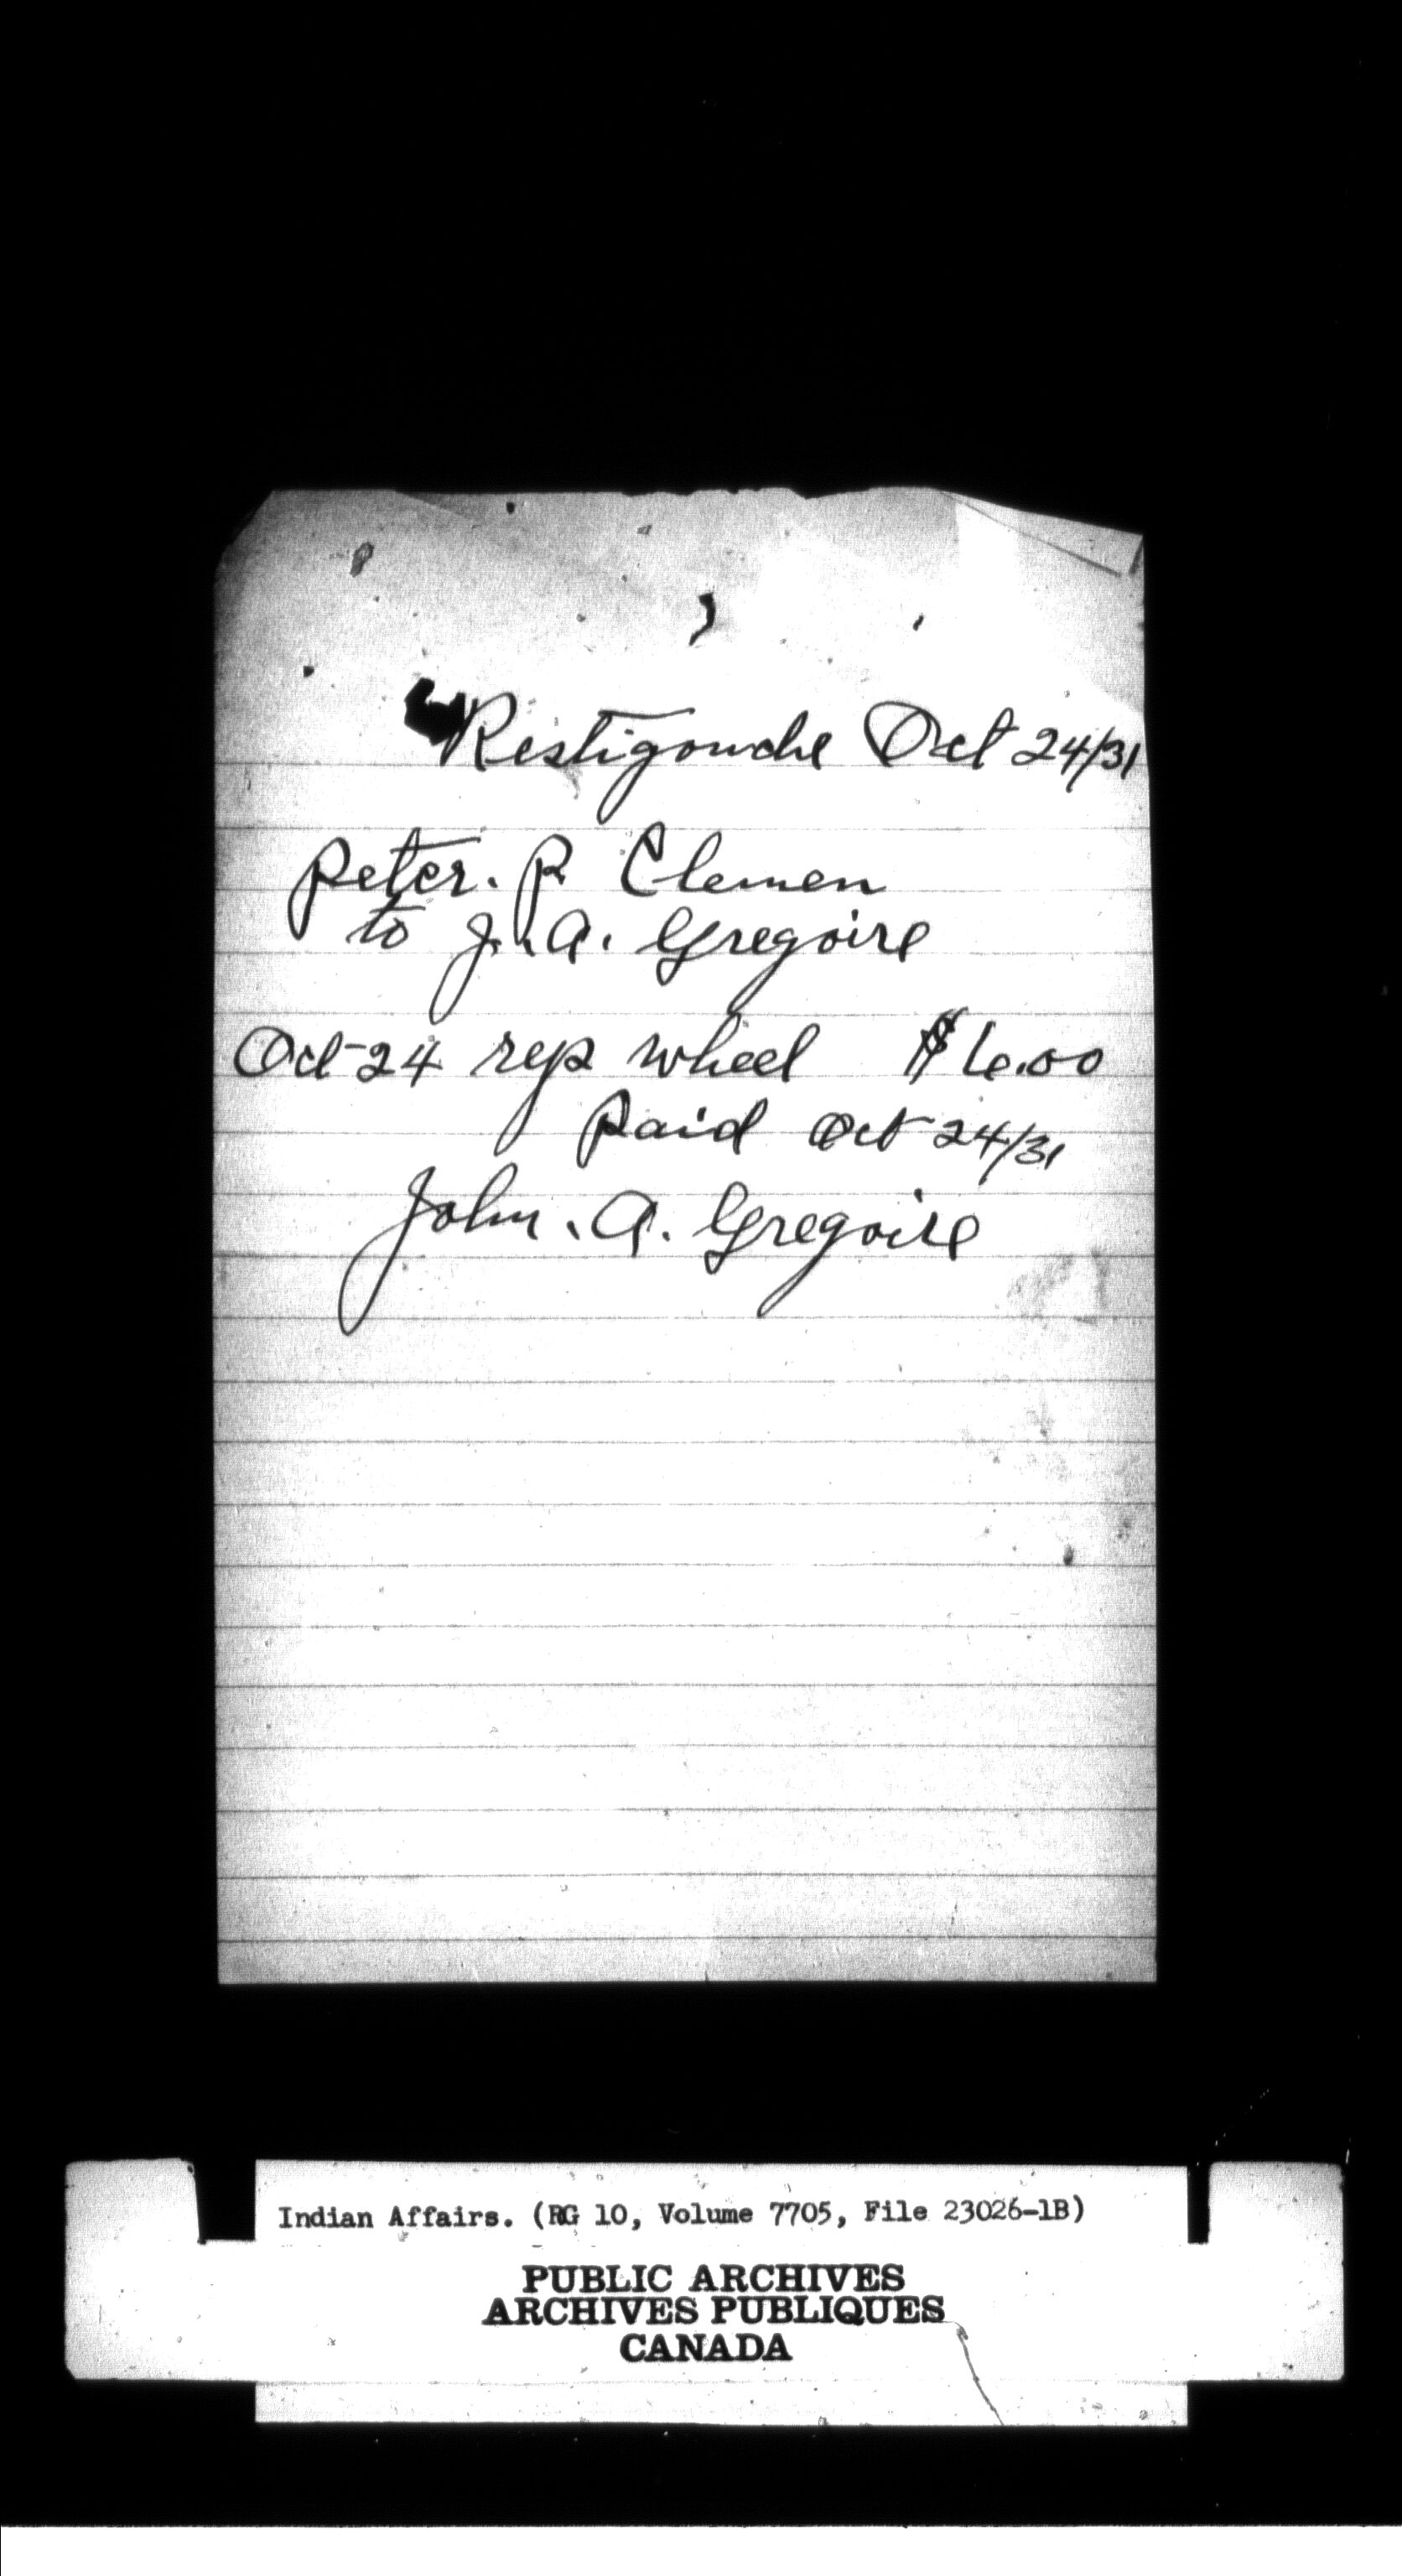 Restigouche Oct 24/31
Peter. P Clemen
to J. A. Gregoire
Oct-24 rep wheel $6.00
Paid Oct 24/31
John. A. Gregoire
Indian Affairs. (RG 10, Volume 7705, File 23026-1B)
PUBLIC ARCHIVES
ARCHIVES PUBLIQUES
CANADA